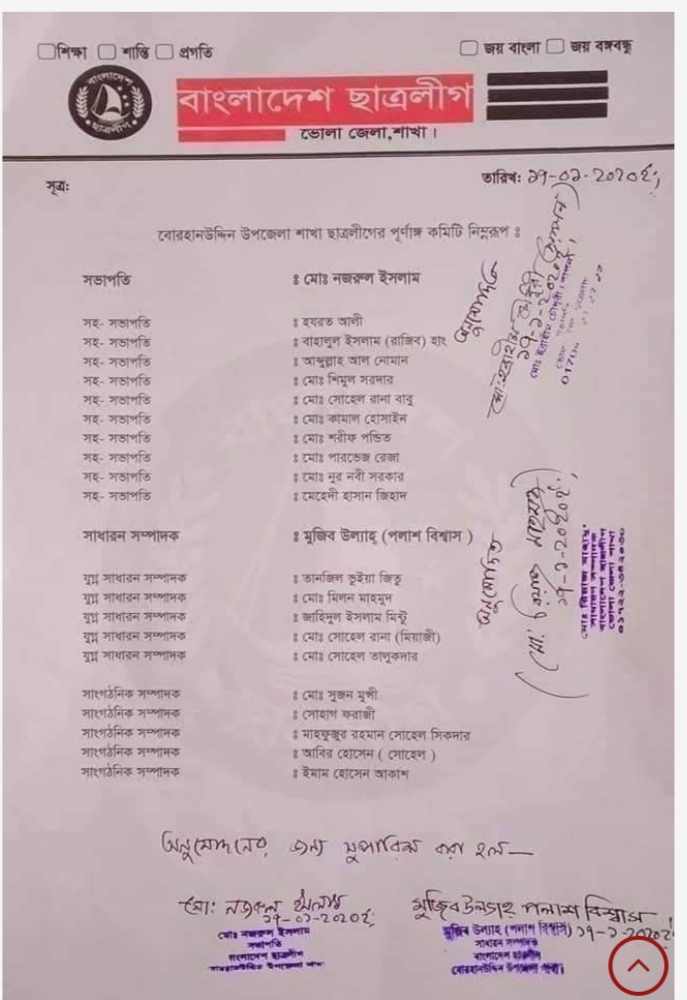 শিক্ষা শান্তি প্রগতি
জয় বাংলা জয় বঙ্গবন্ধু
বাংলাদেশ
ছাত্রলীগ
বাংলাদেশ ছাত্রলীগ
ভোলা জেলা,শাখা।
সূত্র:
তারিখ: ১৭-০১-২০২০ইং
বোরহানউদ্দিন উপজেলা শাখা ছাত্রলীগের পূর্ণাঙ্গ কমিটি নিম্নরূপ ঃ
সভাপতি ঃ মোঃ নজরুল ইসলাম
সহ- সভাপতি ঃ হযরত আলী
সহ- সভাপতি ঃ বাহালুল ইসলাম (রাজিব) হাং
সহ- সভাপতি ঃ আব্দুল্লাহ আল নোমান
সহ- সভাপতি ঃ মোঃ শিমুল সরদার
সহ- সভাপতি ঃ মোঃ সোহেল রানা বাবু
সহ- সভাপতি ঃ মোঃ কামাল হোসাইন
সহ- সভাপতি ঃ মোঃ শরীফ পন্ডিত
সহ- সভাপতি ঃ মোঃ পারভেজ রেজা
সহ- সভাপতি ঃ মোঃ নুর নবী সরকার
সহ- সভাপতি ঃ মেহেদী হাসান জিহাদ
সাধারন সম্পাদক ঃ মুজিব উল্যাহ্ (পলাশ বিশ্বাস )
যুগ্ন সাধারন সম্পাদক ঃ তানজিল ভূইয়া জিতু
যুগ্ন সাধারন সম্পাদক ঃ মোঃ মিলন মাহমুদ
যুগ্ন সাধারন সম্পাদক ঃ জাহিদুল ইসলাম মিন্টু
যুগ্ন সাধারন সম্পাদক ঃ মোঃ সোহেল রানা (মিয়াজী)
যুগ্ন সাধারন সম্পাদক ঃ মোঃ সোহেল তালুকদার
সাংগঠনিক সম্পাদক ঃ মোঃ সুজন মুন্সী
সাংগঠনিক সম্পাদক ঃ সোহাগ ফরাজী
সাংগঠনিক সম্পাদক ঃ মাহফুজুর রহমান সোহেল সিকদার
সাংগঠনিক সম্পাদক ঃ আবির হোসেন ( সোহেল )
সাংগঠনিক সম্পাদক ঃ ইমাম হোসেন আকাশ
অনুমোদিত
১৭-১-২০২০ইং
অনুমোদিত
১৭-১-২০২০ইং
সাধারন সম্পাদক
বাংলাদেশ ছাত্রলীগ
ভোলা জেলা শাখা
অনুমোদনের জন্য সুপারিশ করা হল—
মো: নজরুল ইসলাম
১৭-০১-২০২০ইং
মোঃ নজরুল ইসলাম
সভাপতি
বাংলাদেশ ছাত্রলীগ
বোরহানউদ্দিন উপজেলা শাখা
মুজিব উল্যাহ পলাশ বিশ্বাস
মুজিব উল্যাহ (পলাশ বিশ্বাস) ১৭-১-২০২০ইং
সাধারন সম্পাদক
বাংলাদেশ ছাত্রলীগ
বোরহানউদ্দিন উপজেলা শাখা।